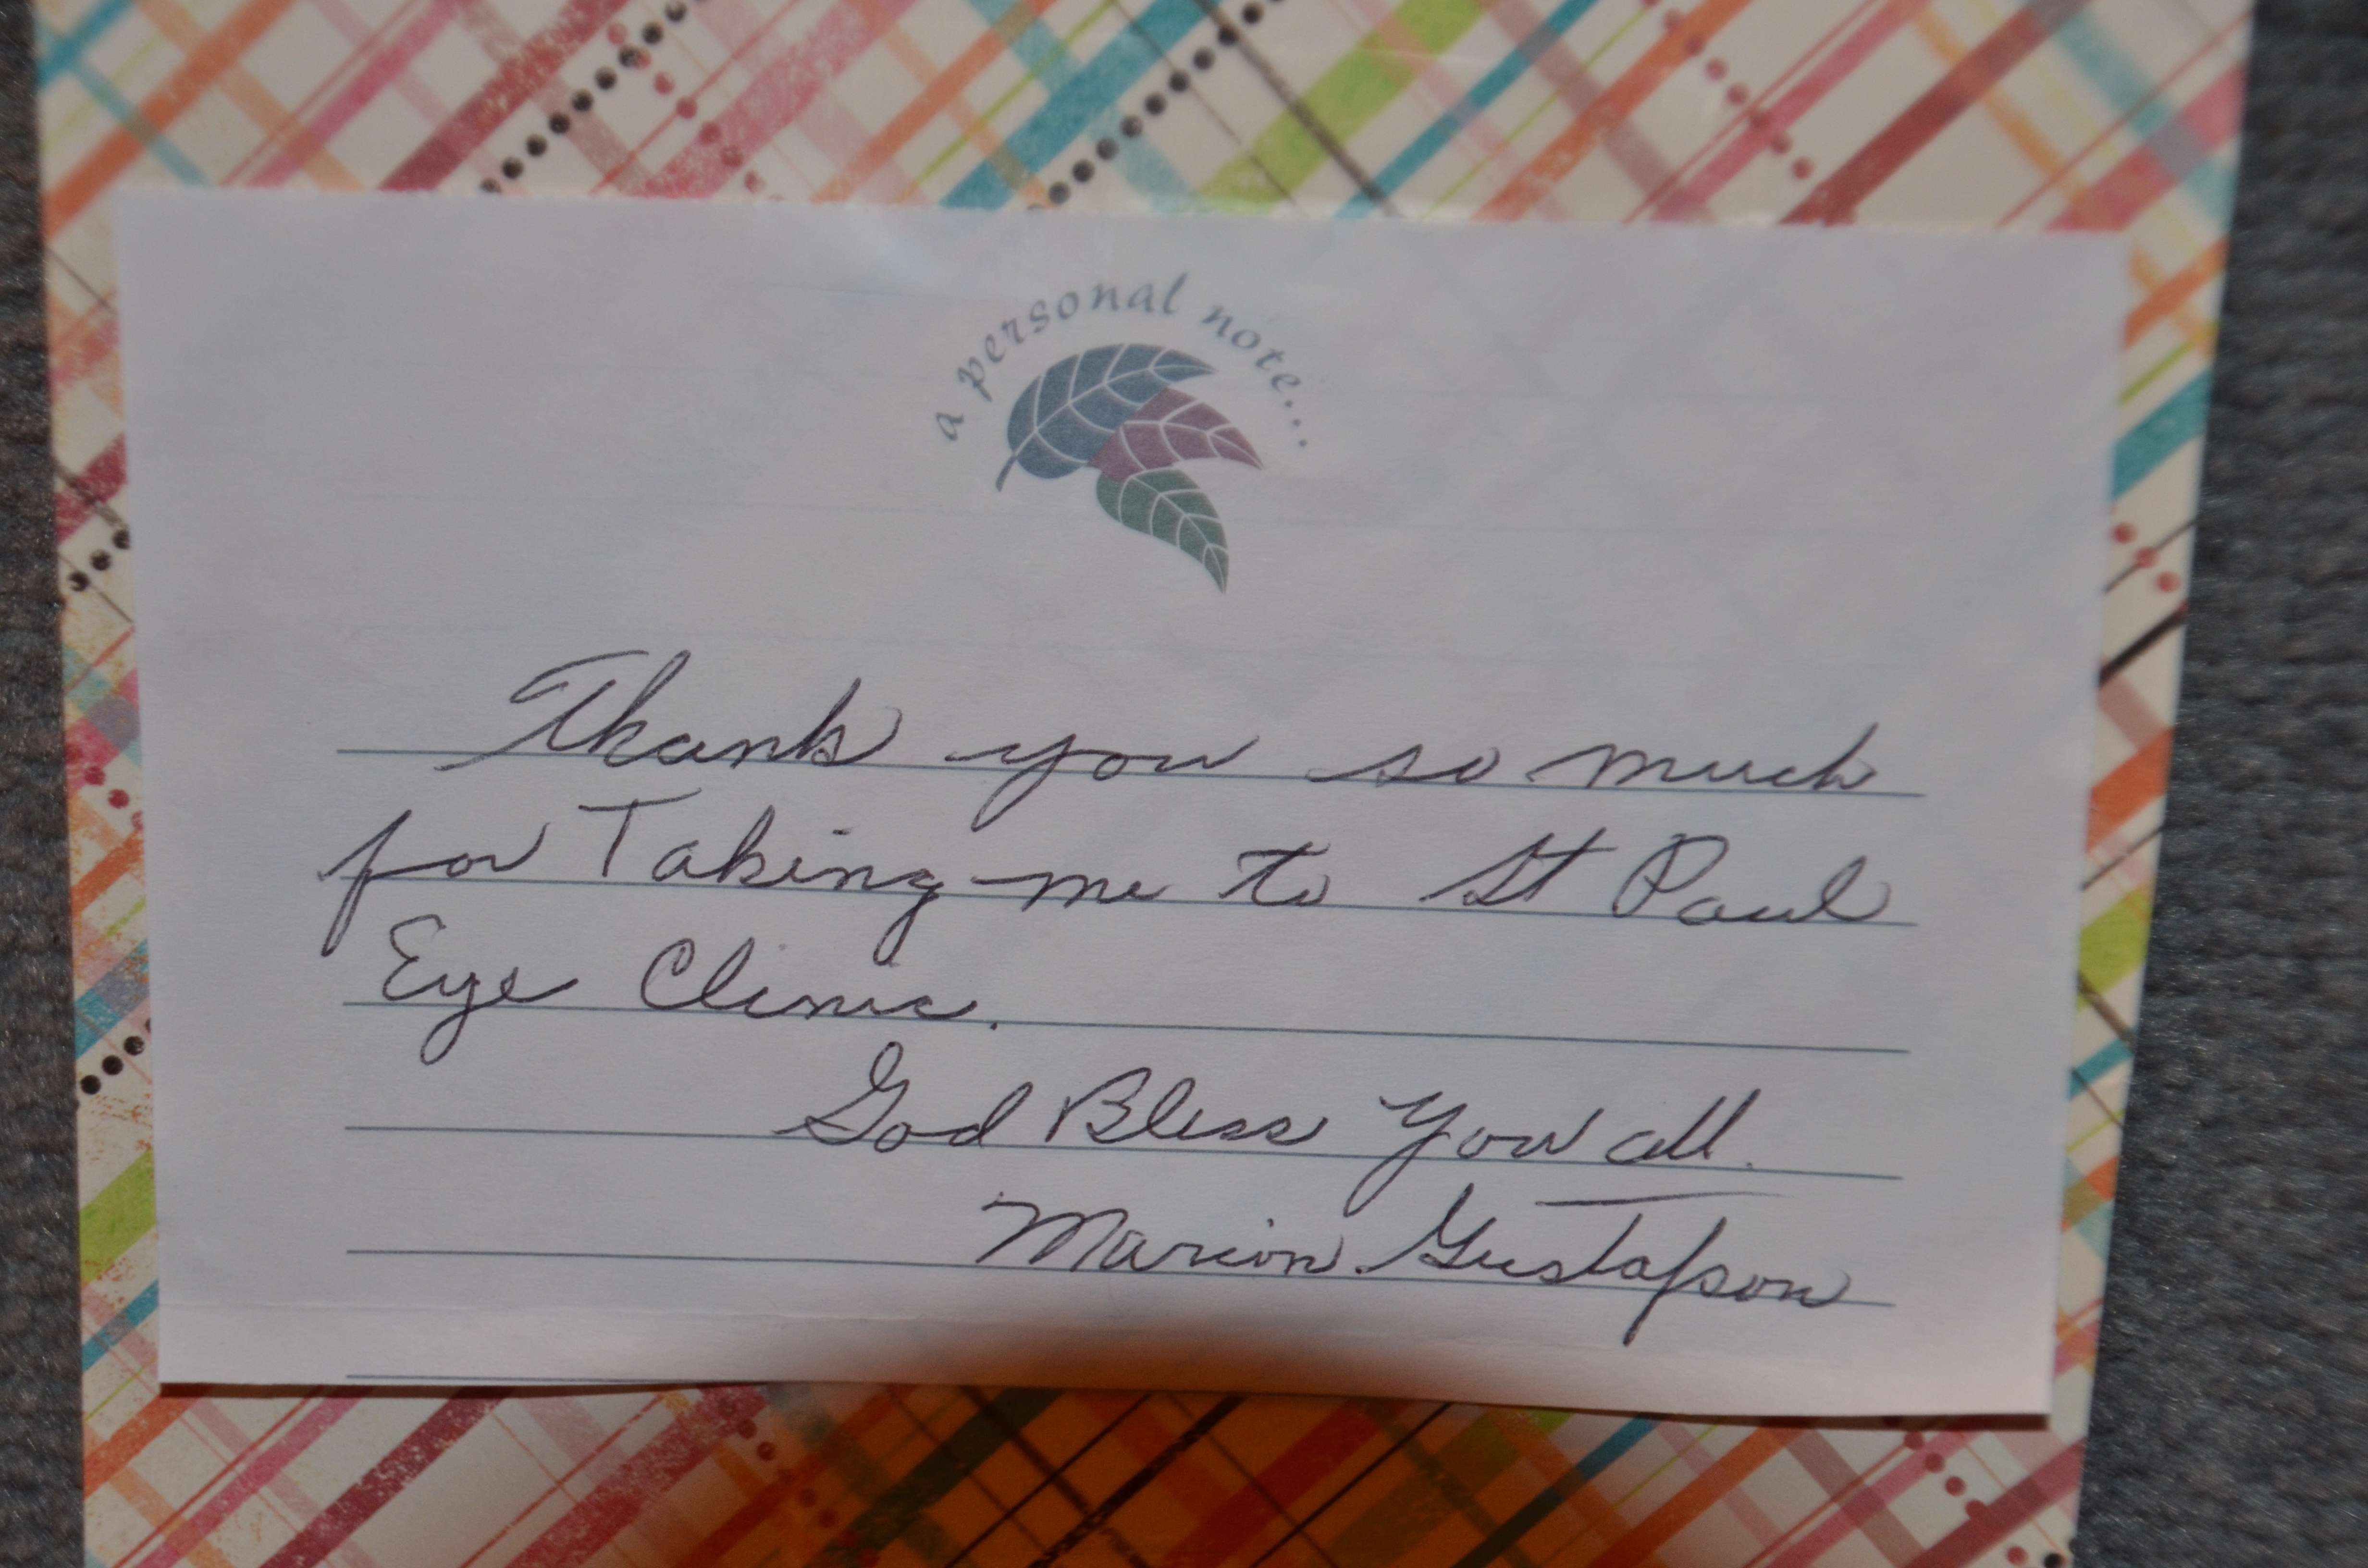 a personal note...
Thank you so much
for Taking me to St Paul
Eye Clinic.
God Bless You all.
Marion Gustafson